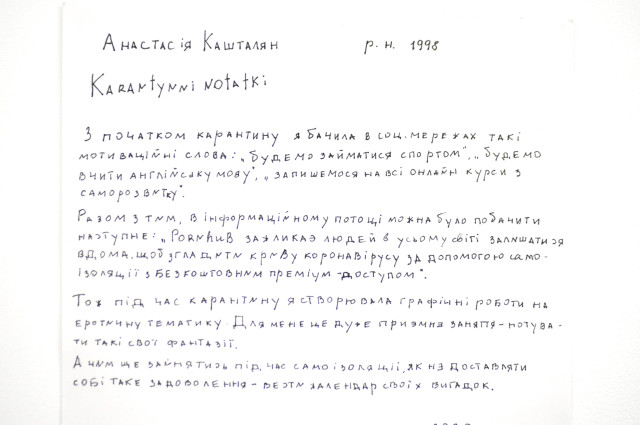 Анастасія Кашталян р.н. 1998
Karantynni notatki
З початком карантину я бачила в соц. мережах такі
мотиваційні слова: „будемо займатися спортом", „будемо
вчити англійську мову", „запишемося на всі онлайн курси з
саморозвитку".
Разом з тим, в інформаційному потоці можна було побачити
наступне: „Pornhub закликає людей в усьому світі залишатися
вдома, щоб згладити криву коронавірусу за допомогою само-
ізоляції з безкоштовним преміум-доступом".
Тож під час карантину я створювала графічні роботи на
еротичну тематику. Для мене ще дуже приємне заняття - нотува-
ти такі свої фантазії.
А чим ще зайнятись під час самоізоляції, як не доставляти
собі таке задоволення - вести календар своїх вигадок.